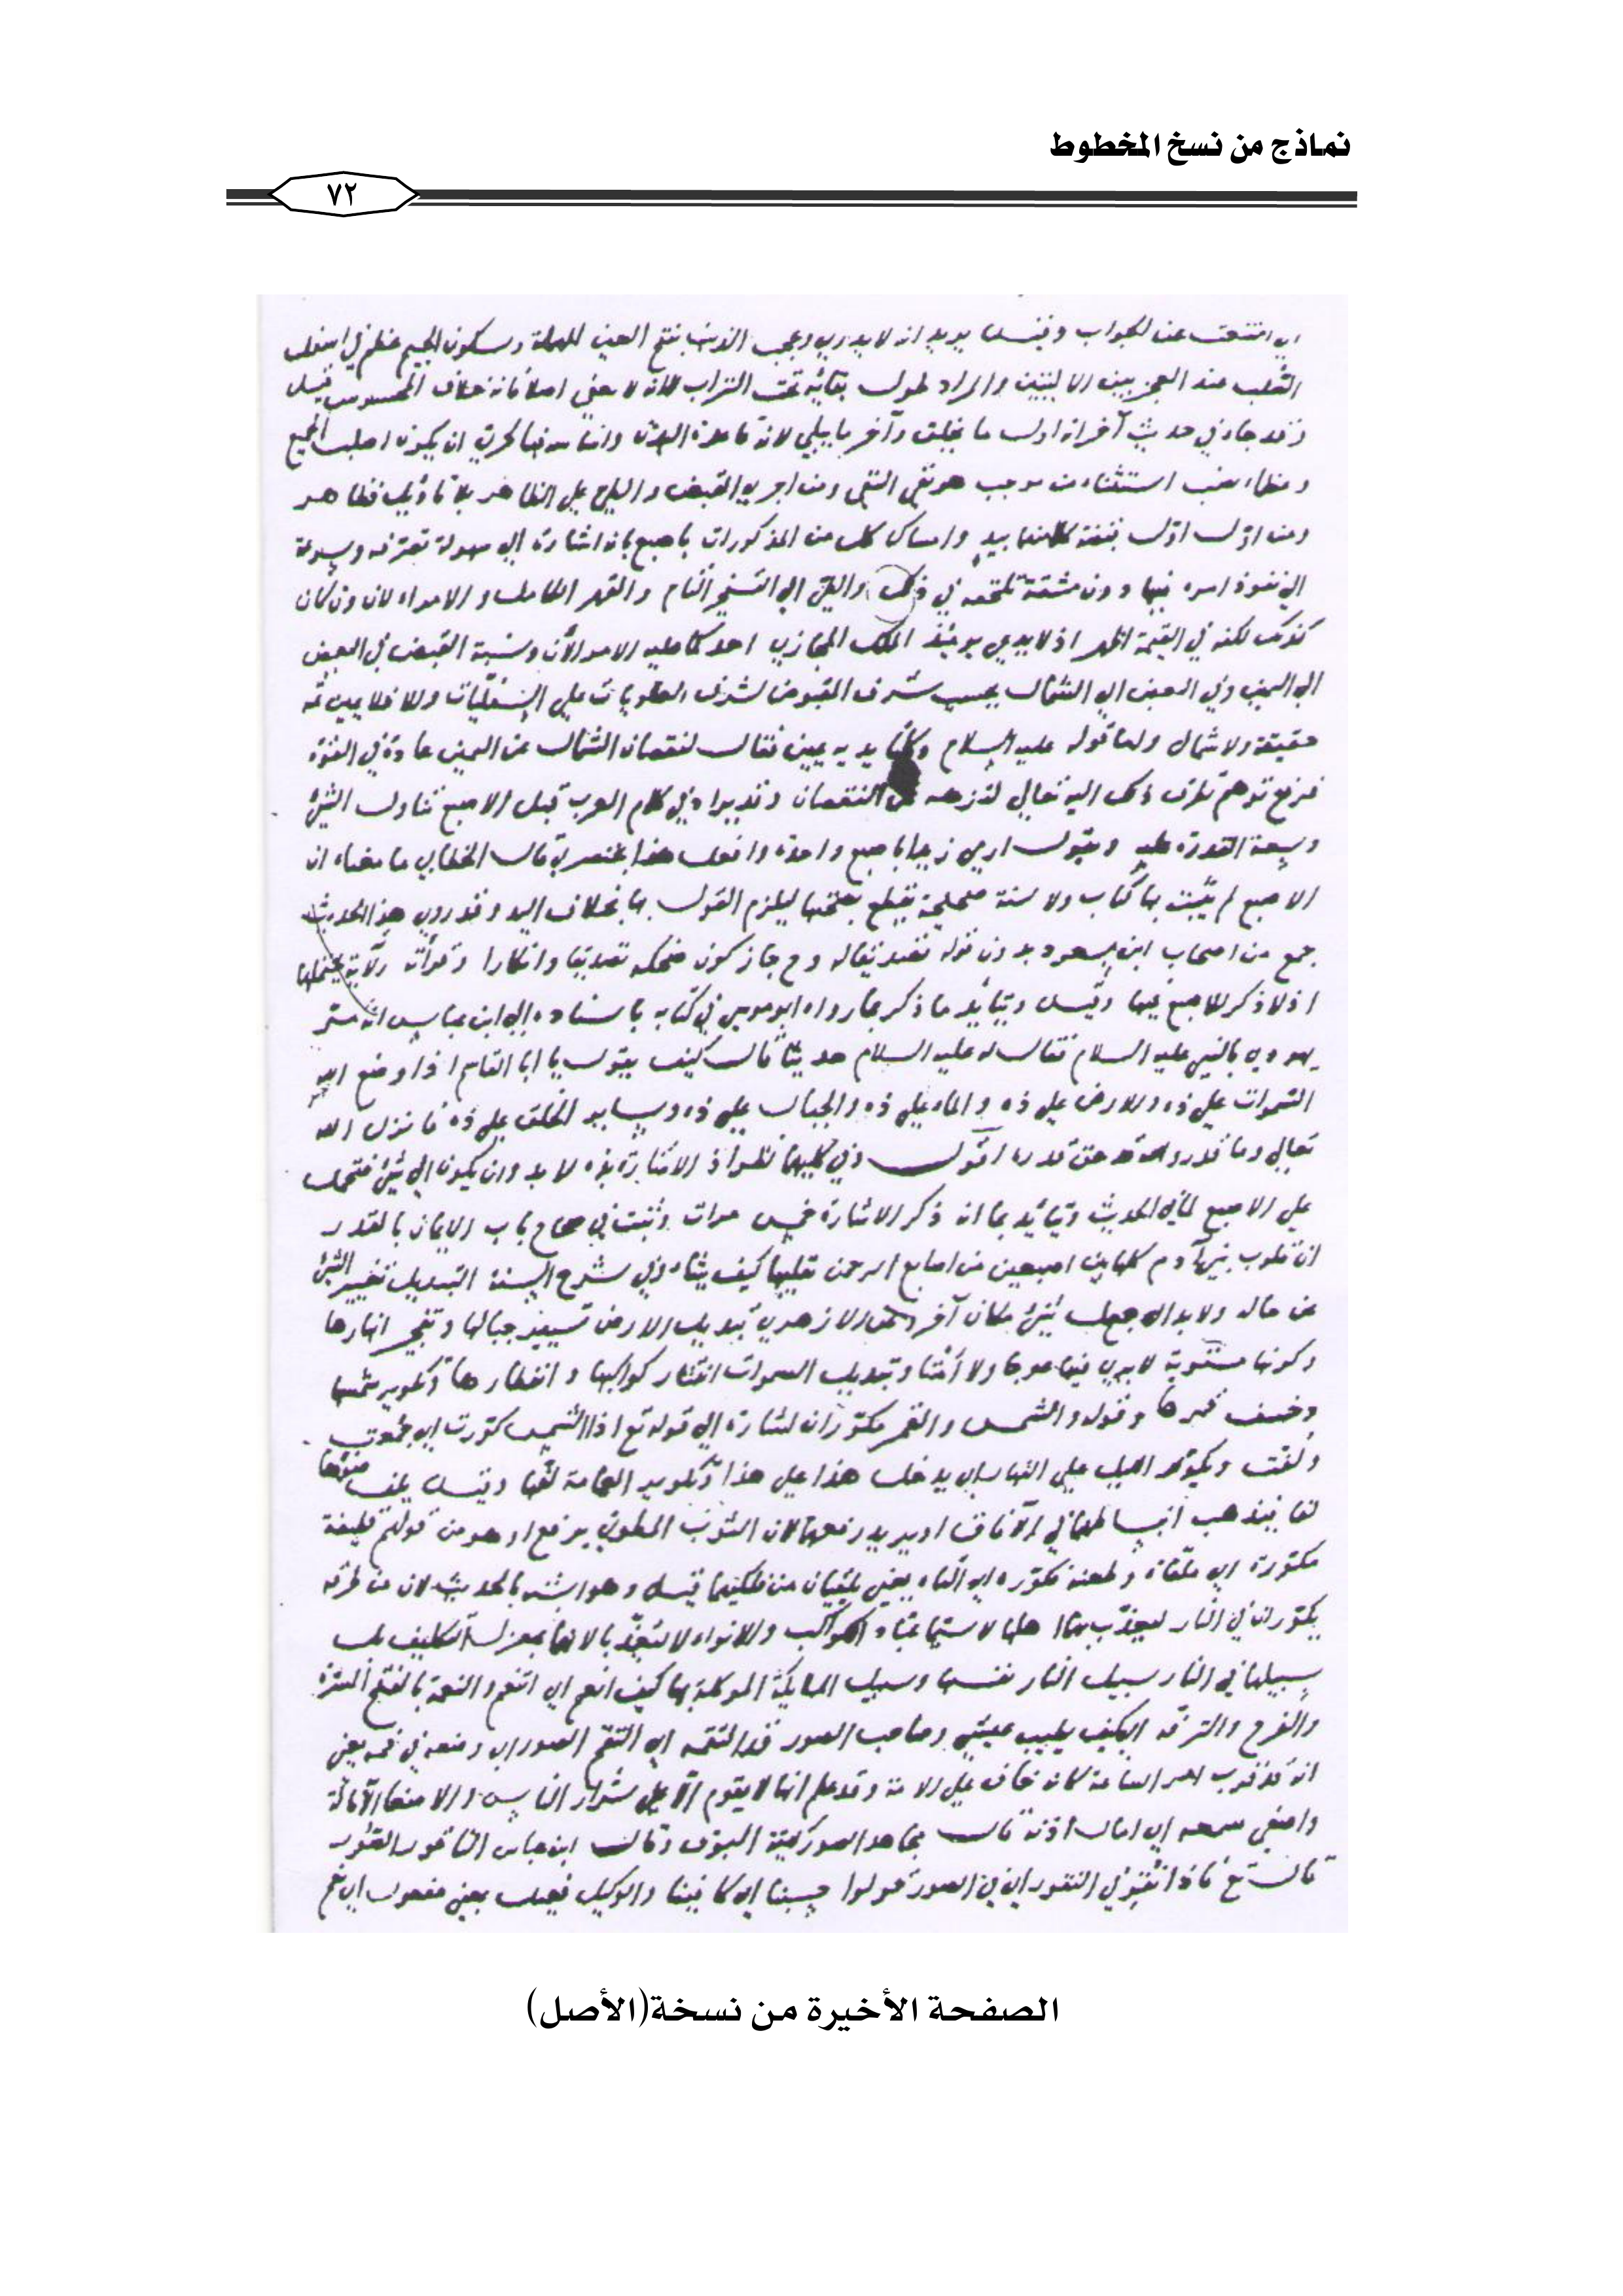 نماذج من نسخ المخطوط
٧٢
اي امتنعت عن الجواب وقيل يريد انه لا يدري وعجب الذنب بفتح العين المهملة وسكون الجيم عظم في اسفل
الصلب عند العجز بين الاليتين والمراد طول بقائه تحت التراب لا انه لا يفنى اصلا فانه خلاف المحسوس قيل
وقد جاء في حديث آخر انه اول ما يخلق وآخر ما يبلى لانه قاعدة البدن
استثناء من موجب هو نفي النفي ومن اجرى القبض والطي على الظاهر بلا تأويل فظاهر
ومن اول اول وامساك كل من المذكورات باصبع بانه اشارة الى سهولة تصرفه وسرعة
نفوذ امره فيها دون مشقة تلحقه في ذلك والطي الى التسخير التام والقهر الكامل والامر الان وان كان
كذلك لكنه في القيمة اظهر اذ لا يدعي يومئذ الملك المجازي احد كما عليه الامر الآن ونسبة القبض في البعض
الى اليمين وفي البعض الى الشمال بحسب شرف المقبوض لشرف العلويات على السفليات والا فلا يمين ثمه
حقيقة ولا شمال ولذا قوله عليه السلام وكلتا يديه يمين فقال لنقصان الشمال عن اليمين عادة في القوة
فرفع توهم تطرق ذلك اليه تعالى لتنزهه عن النقصان وقد يراد في كلام العرب قبل الاصبع تناول الشيء
وسعة القدرة عليه ويقول ارمي زيدا باصبع واحدة وافعل هذا بخنصري قال الخطابي ما معناه ان
الاصبع لم يثبت بها كتاب ولا سنة صحيحة يقطع بصحتها ليلزم القول بها بخلاف اليد وقد روى هذا الحديث
جمع من اصحاب ابن مسعود بدون قوله تصديقا له وح جاز كون ضحكه تصديقا وانكارا وقرأته الآية يحتملها
اذ لا ذكر للاصبع فيها وقيل ويتأيد ما ذكر بما رواه ابو موسى في كتابه باسناده الى ابن عباس انه مر
يهودي بالنبي عليه السلام فقال له عليه السلام حديثا قال كيف يقول يا ابا القاسم اذا وضع الله
السموات على ذه والارض على ذه والماء على ذه والجبال على ذه وسائر الخلق على ذه فانزل الله
تعالى وما قدروا الله حق قدره اقول وفي كليهما نظر اذ الاشارة بذه لا بد وان يكون الى شيء فتحمل
على الاصبع لهذا الحديث ويتأيد بما انه ذكر الاشارة خمس مرات وثبت في صحاح باب الايمان بالقدر
ان قلوب بني آدم كلها بين اصبعين من اصابع الرحمن يقلبها كيف يشاء وفي شرح السنة التبديل تغيير الشيء
عن حاله والابدال جعل شيء مكان آخر وعن الازهري تبديل الارض تسيير جبالها وتفجير انهارها
وكونها مستوية لا يرى فيها عوجا ولا أمتا وتبديل السموات انتثار كواكبها وانفطارها وتكوير شمسها
وخسف قمرها وقوله والشمس والقمر مكوران اشارة الى قوله تع اذا الشمس كورت اي جمعت
ولفت ويكور الليل على النهار اي يدخل هذا على هذا وتكوير العمامة لفها وقيل يلف ضوؤها
لفا فيذهب انبساطها في الآفاق او يريد رفعها لان الثوب المطوي يرفع او هو من قولهم
مكورة اي ملقاة وطعنه فكوره اي القاه يعني يلقيان من فلكيهما قيل وهو اشبه بالحديث لان من طرقه
يكوران في النار ليعذب بهما اهلها لا سيما عباد الكواكب والانوار لا ليعذبا لانهما بمعزل التكليف بل
سبيلهما في النار سبيل النار نفسها وسبيل الملائكة الموكلة بها كيف انعم اي اتنعم والنعمة بالفتح المسرة
والفرح والترفه اي كيف يطيب عيشي وصاحب الصور قد التقمه اي التقم الصور اي وضعه في فمه يعني
انه قد قرب امر الساعة كانه خاف على الامة وقد علم انها لا يقوم الا على شرار الناس
واصغى سمعه اي امال اذنه قال مجاهد الصور كهيئة البوق وقال ابن عباس الناقور الصور
قال تع فاذا نقر في الناقور اي في الصور قولوا حسبنا اي كافينا والوكيل فعيل بمعنى مفعول اي نعم
الصفحة الأخيرة من نسخة(الأصل)